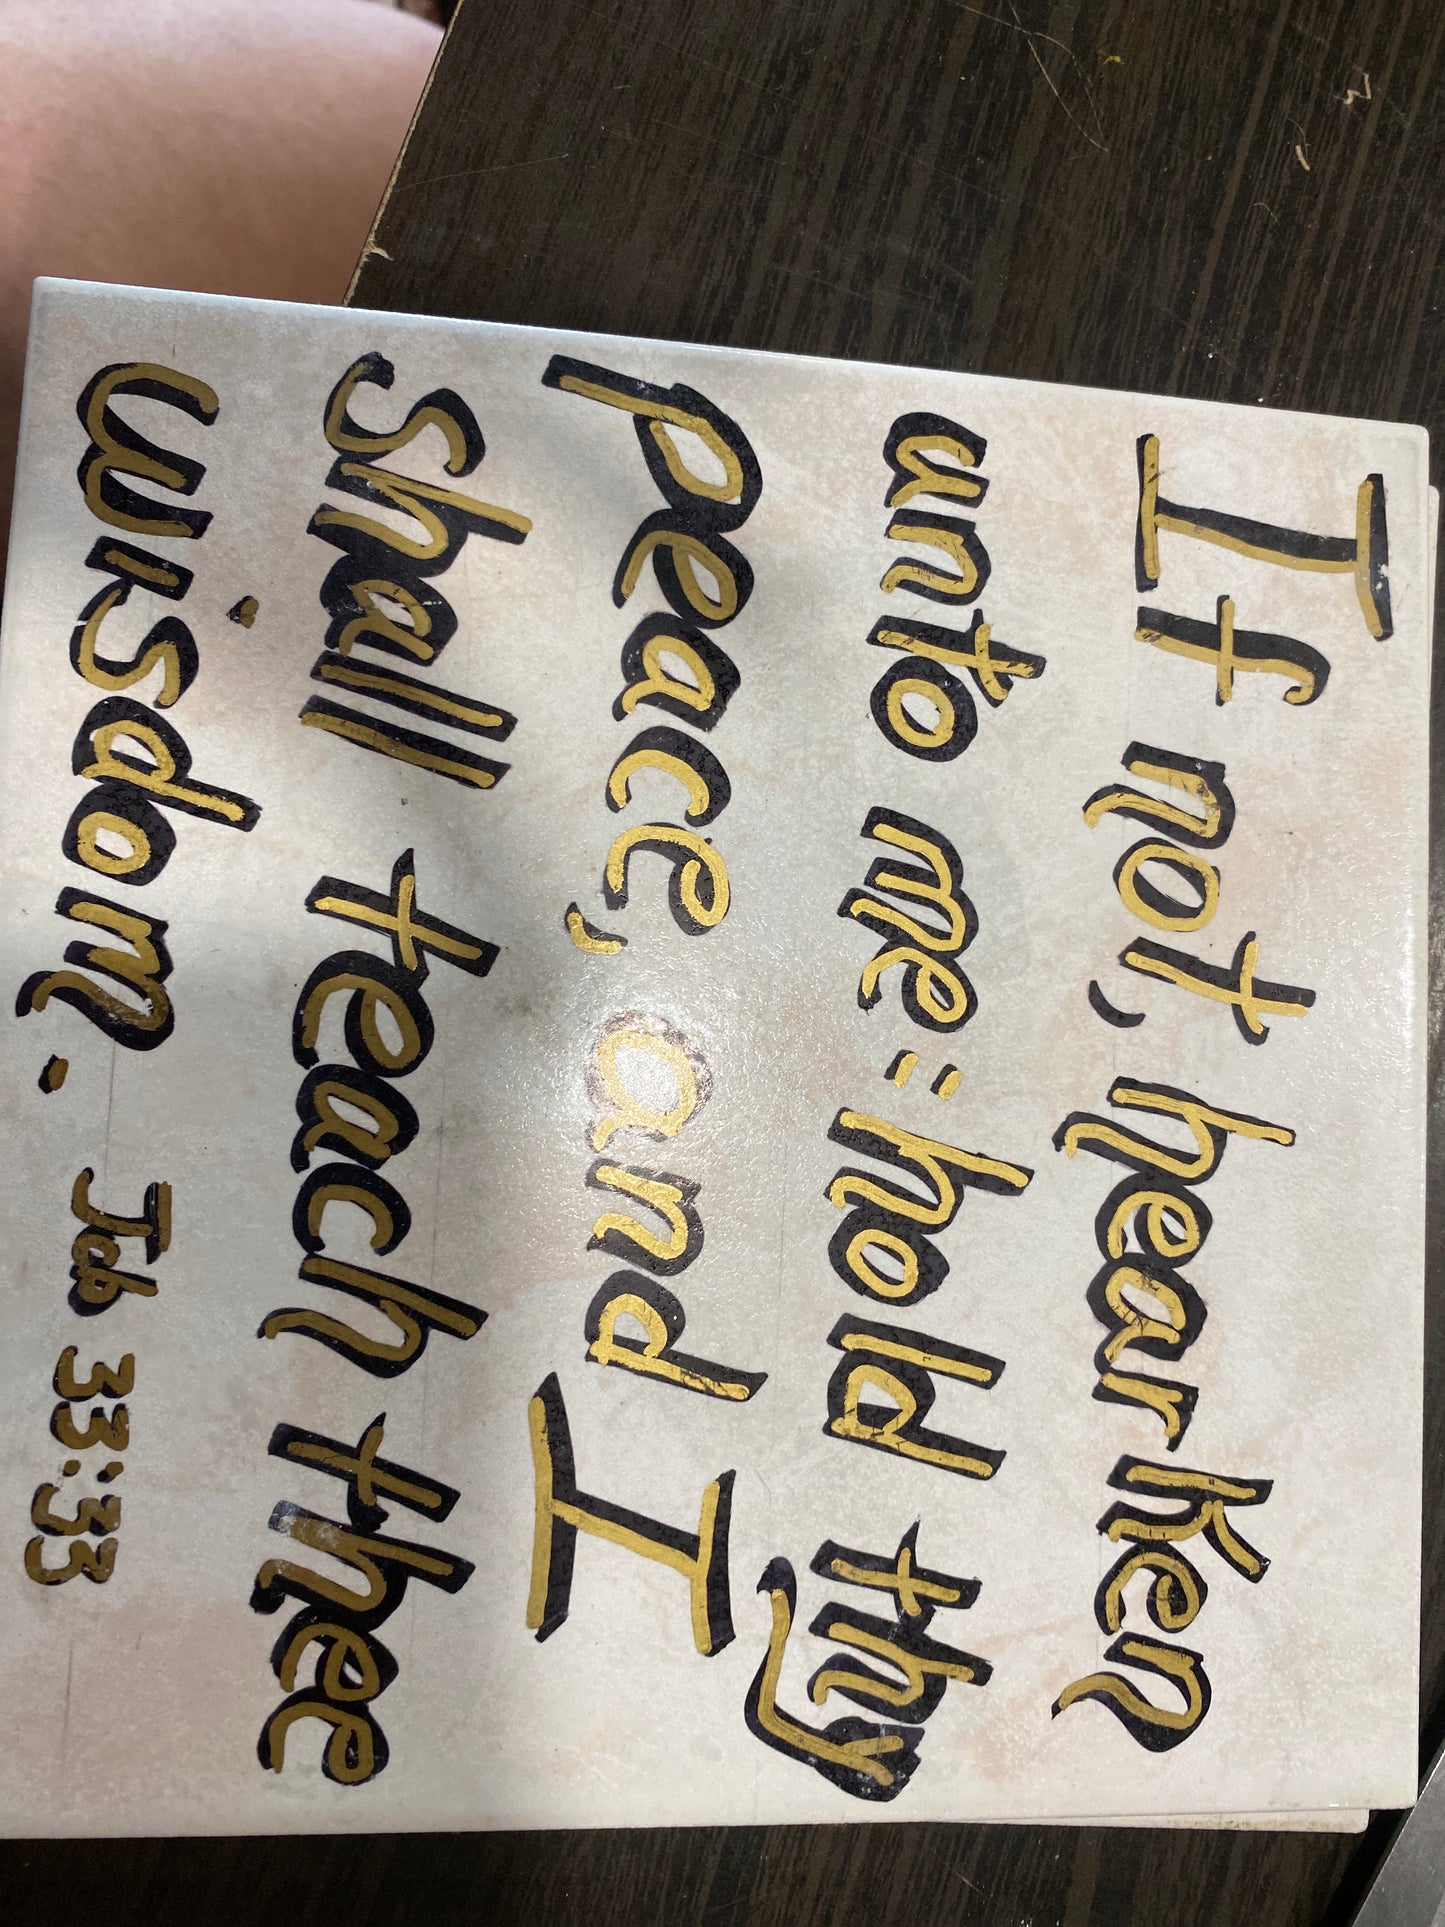 If not, hearken
unto me: hold thy
peace, and I
shall teach thee
wisdom. Job 33:33